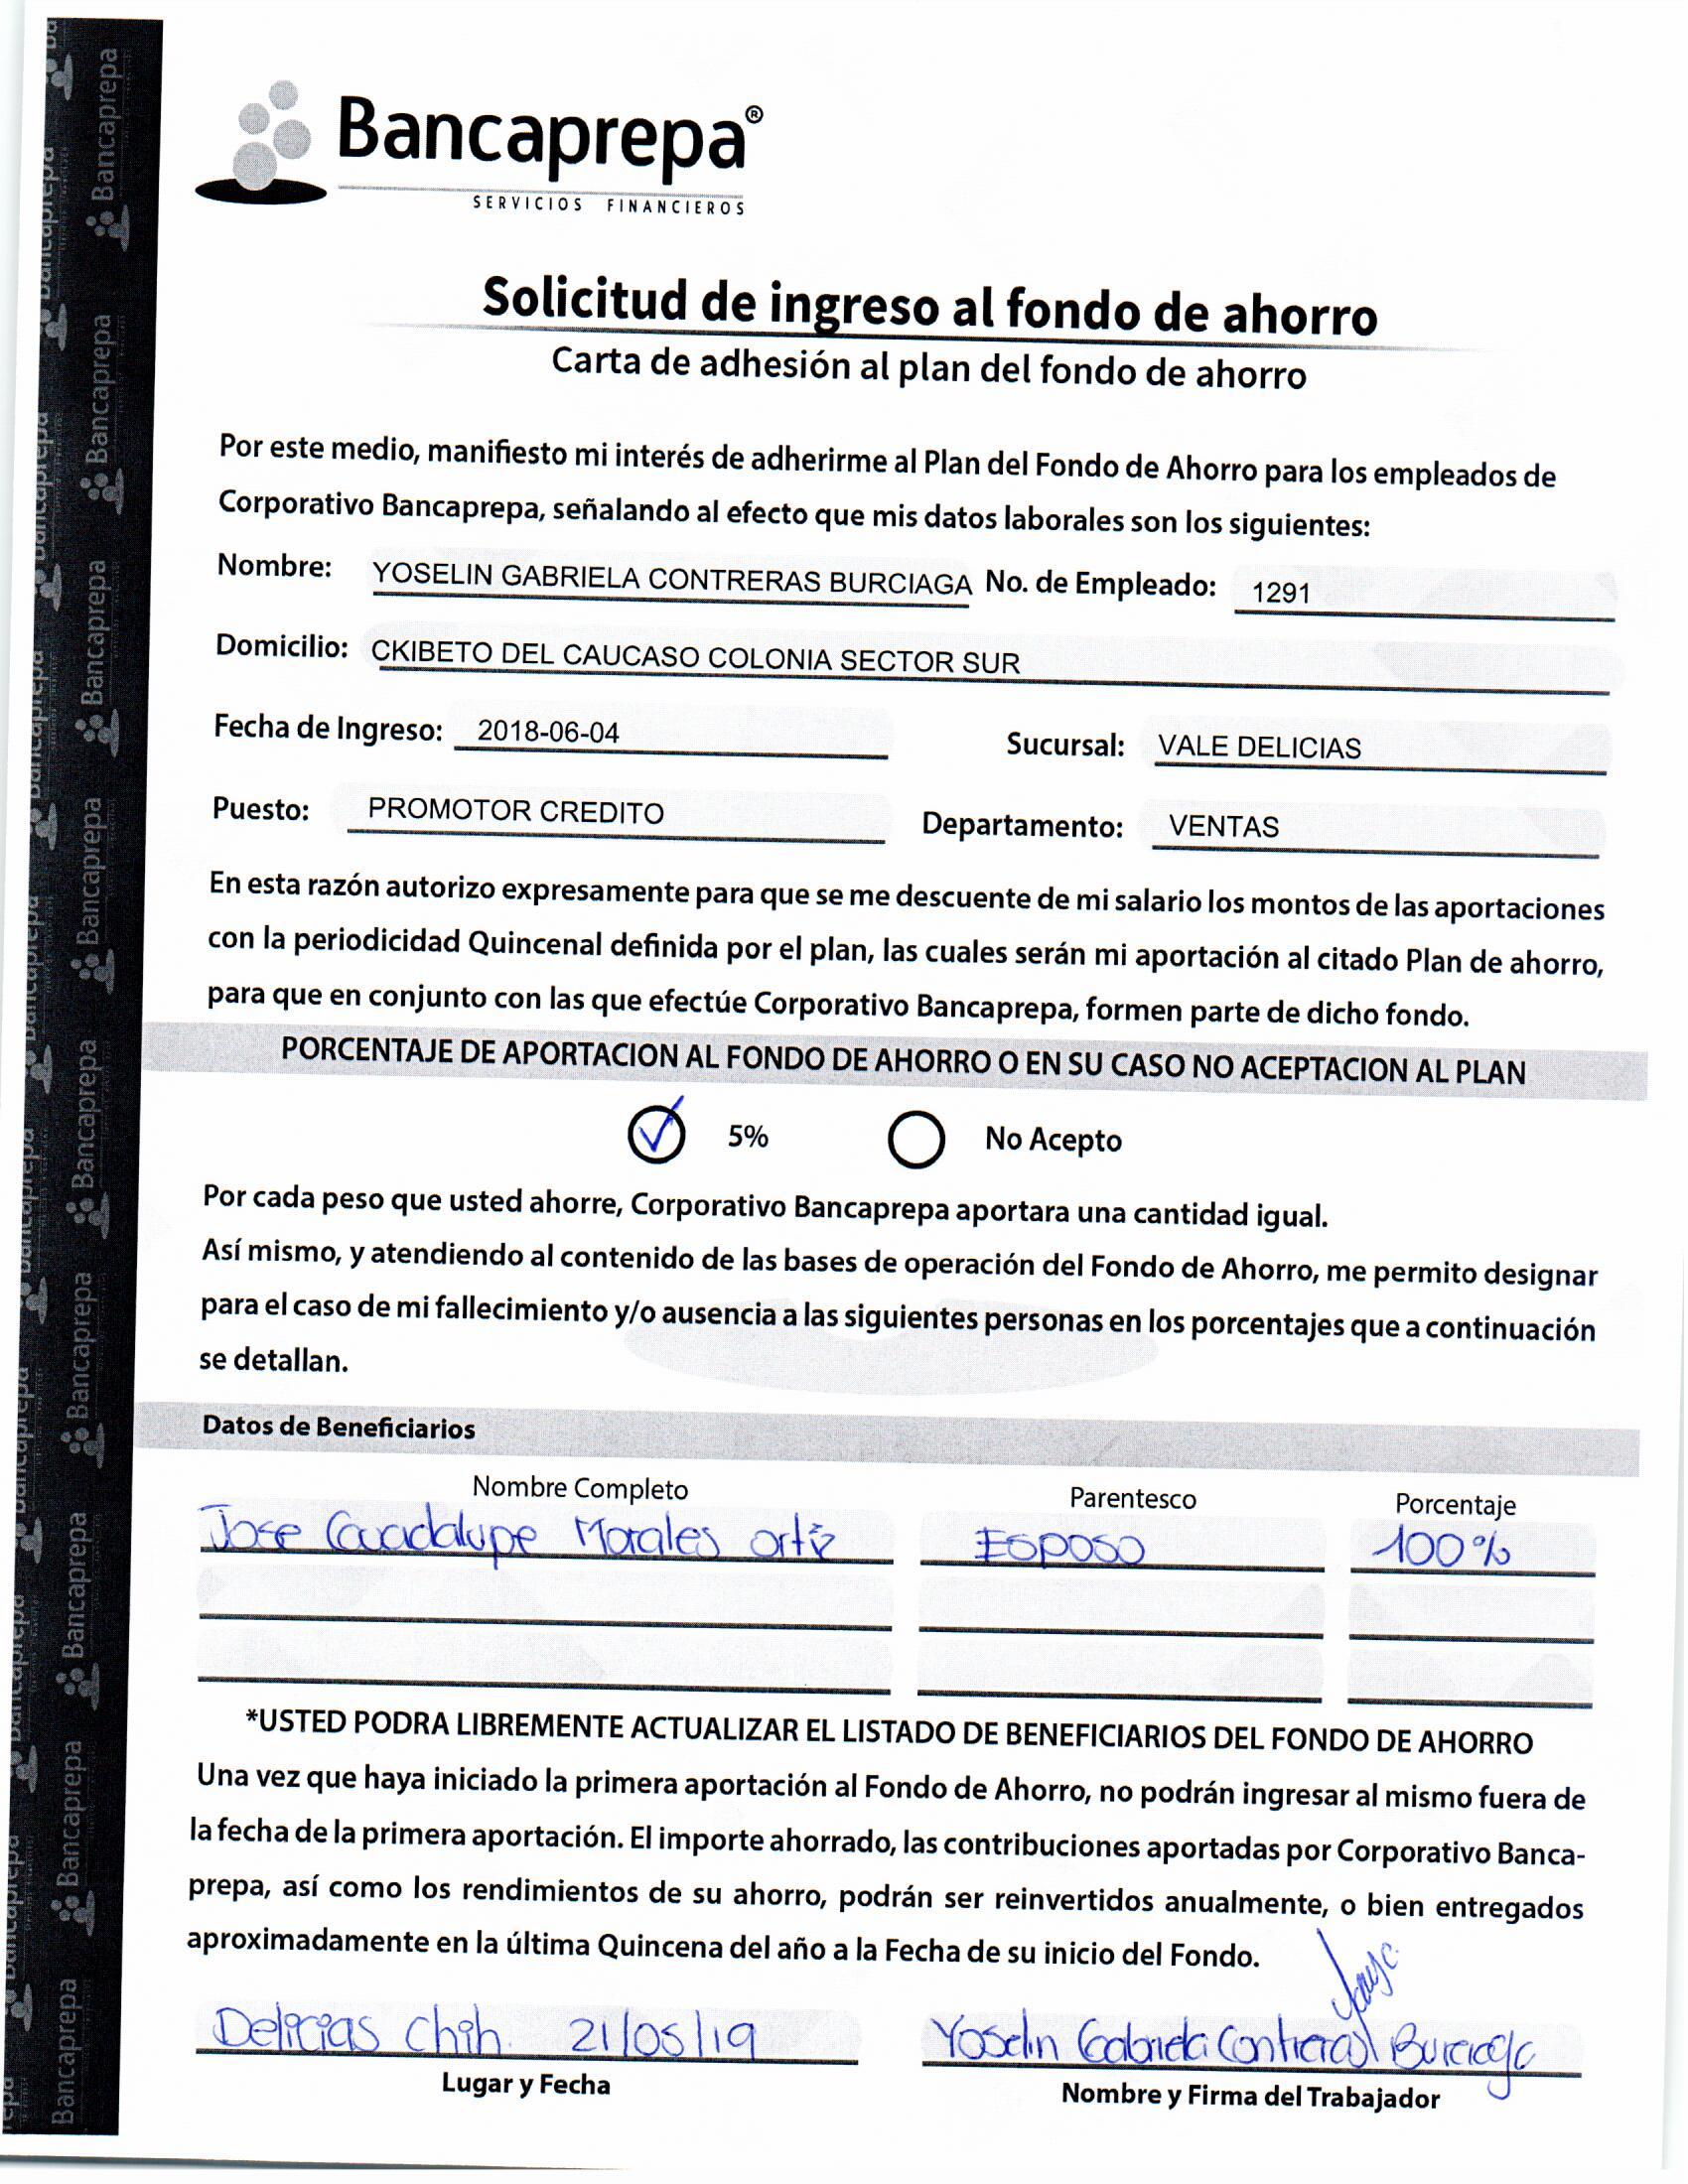 Bancaprepa®
SERVICIOS FINANCIEROS
Solicitud de ingreso al fondo de ahorro
Carta de adhesión al plan del fondo de ahorro
Por este medio, manifiesto mi interés de adherirme al Plan del Fondo de Ahorro para los empleados de
Corporativo Bancaprepa, señalando al efecto que mis datos laborales son los siguientes:
Nombre: YOSELIN GABRIELA CONTRERAS BURCIAGA No. de Empleado: 1291
Domicilio: CKIBETO DEL CAUCASO COLONIA SECTOR SUR
Fecha de Ingreso: 2018-06-04 Sucursal: VALE DELICIAS
Puesto: PROMOTOR CREDITO Departamento: VENTAS
En esta razón autorizo expresamente para que se me descuente de mi salario los montos de las aportaciones
con la periodicidad Quincenal definida por el plan, las cuales serán mi aportación al citado Plan de ahorro,
para que en conjunto con las que efectúe Corporativo Bancaprepa, formen parte de dicho fondo.
PORCENTAJE DE APORTACION AL FONDO DE AHORRO O EN SU CASO NO ACEPTACION AL PLAN
5% No Acepto
Por cada peso que usted ahorre, Corporativo Bancaprepa aportara una cantidad igual.
Así mismo, y atendiendo al contenido de las bases de operación del Fondo de Ahorro, me permito designar
para el caso de mi fallecimiento y/o ausencia a las siguientes personas en los porcentajes que a continuación
se detallan.
Datos de Beneficiarios
Nombre Completo Parentesco Porcentaje
Jose Guadalupe Morales Ortiz Esposo 100%
*USTED PODRA LIBREMENTE ACTUALIZAR EL LISTADO DE BENEFICIARIOS DEL FONDO DE AHORRO
Una vez que haya iniciado la primera aportación al Fondo de Ahorro, no podrán ingresar al mismo fuera de
la fecha de la primera aportación. El importe ahorrado, las contribuciones aportadas por Corporativo Banca-
prepa, así como los rendimientos de su ahorro, podrán ser reinvertidos anualmente, o bien entregados
aproximadamente en la última Quincena del año a la Fecha de su inicio del Fondo.
Delicias Chih. 21/05/19 Yoselin Gabriela Contreras Burciaga
Lugar y Fecha Nombre y Firma del Trabajador